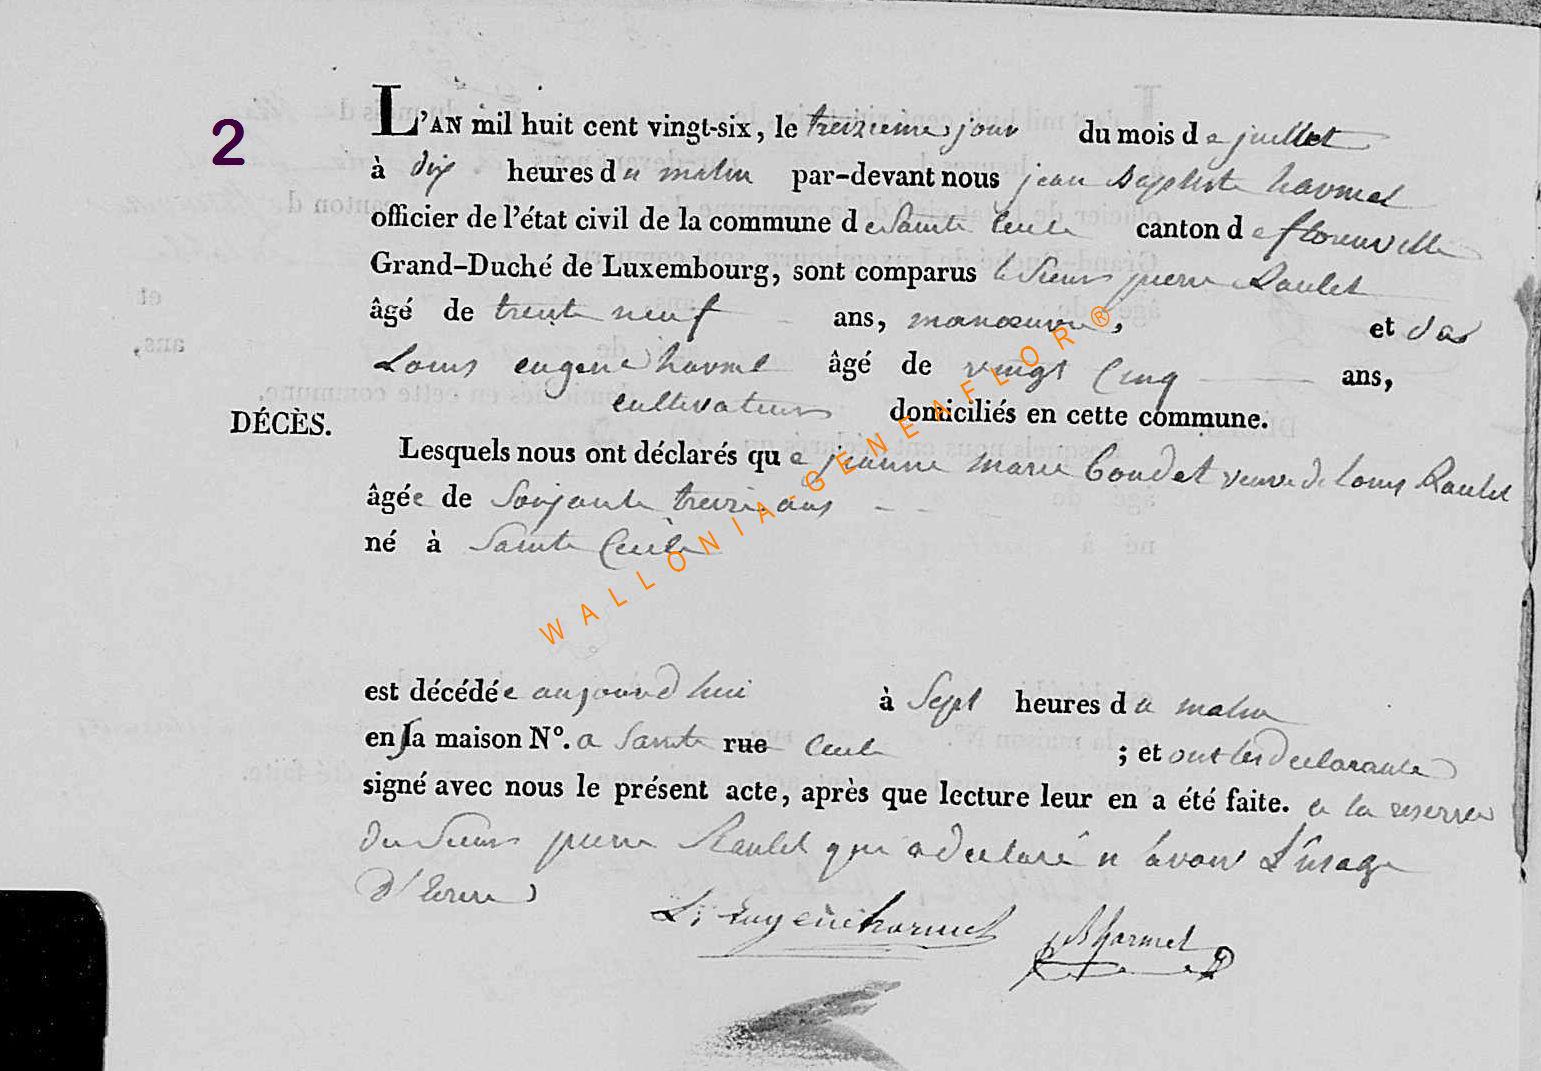 2
L'AN mil huit cent vingt-six, le treizieme jour du mois de juillet
à dix heures du matin par-devant nous jean Baptiste harmel
officier de l'état civil de la commune de Sainte Cecile canton de florenville
Grand-Duché de Luxembourg, sont comparus le Sieurs pierre Raulet
âgé de trente neuf ans, manœuvre, et
Louis eugene harmel âgé de vingt Cinq ans,
cultivateurs domiciliés en cette commune.
DÉCÈS.
Lesquels nous ont déclarés que jeanne marie Goudet veuve de louis Raulet
âgée de Soixante treize ans
né à Sainte Cecile
est décédée aujourd hui à Sept heures du matin
en sa maison N°. a Sainte rue Cecile ; et ont les declarants
signé avec nous le présent acte, après que lecture leur en a été faite. a la reserve
du Sieurs pierre Raulet qui a declaré n'avoir L'usage
d'Ecrire
L; Eugène harmel JB harmel
WALLONIA-GENEAFLOR®